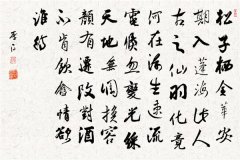 松子栖金華安
期入蓬海此人
古之仙羽化竟
何在浮生速流
電倏忽變光綵
天地無凋換容
顏有遷改對酒
不肯飲含情欲
誰待